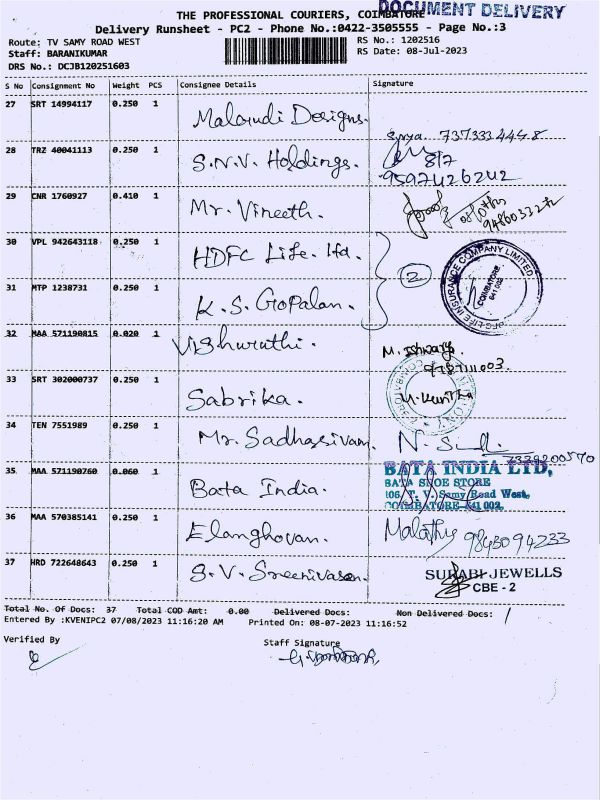 DOCUMENT DELIVERY
THE PROFESSIONAL COURIERS, COIMBATORE
Delivery Runsheet - PC2 - Phone No.:0422-3505555 - Page No.:3
Route: TV SAMY ROAD WEST RS No.: 1202516
Staff: BARANIKUMAR RS Date: 08-Jul-2023
DRS No.: DCJB120251603
S No Consignment No Weight PCS Consignee Details Signature
27 SRT 14994117 0.250 1 Designs.
737333444 8
28 TRZ 40041113 0.250 1 S.N.V. Holdings. 8/7
9597426242
29 CNR 1760927 0.410 1 Mr. Vineeth.
30 VPL 942643118 0.250 1 HDFC Life. ltd. 2
LIFE INSURANCE COMPANY LIMITED
COIMBATORE
641 002
31 MTP 1238731 0.250 1 K.S. Gopalan.
32 MAA 571190815 0.020 1 Vishuruthi. M. Ishwarya.
33 SRT 302000737 0.250 1 Sabrika.
34 TEN 7551989 0.250 1 Mr. Sadhasivam.
7339200570
35 MAA 571190760 0.060 1 Bata India. BATA INDIA LTD,
BATA SHOE STORE
106, T. V. Samy Road West,
COIMBATORE-641 002.
36 MAA 570385141 0.250 1 Elanghovan. Malathy 9843094233
37 HRD 722648643 0.250 1 S.V. Sreenivasan. SURABI JEWELLS
CBE - 2
Total No. Of Docs: 37 Total COD Amt: 0.00 Delivered Docs: Non Delivered Docs: /
Entered By :KVENIPC2 07/08/2023 11:16:20 AM Printed On: 08-07-2023 11:16:52
Verified By Staff Signature